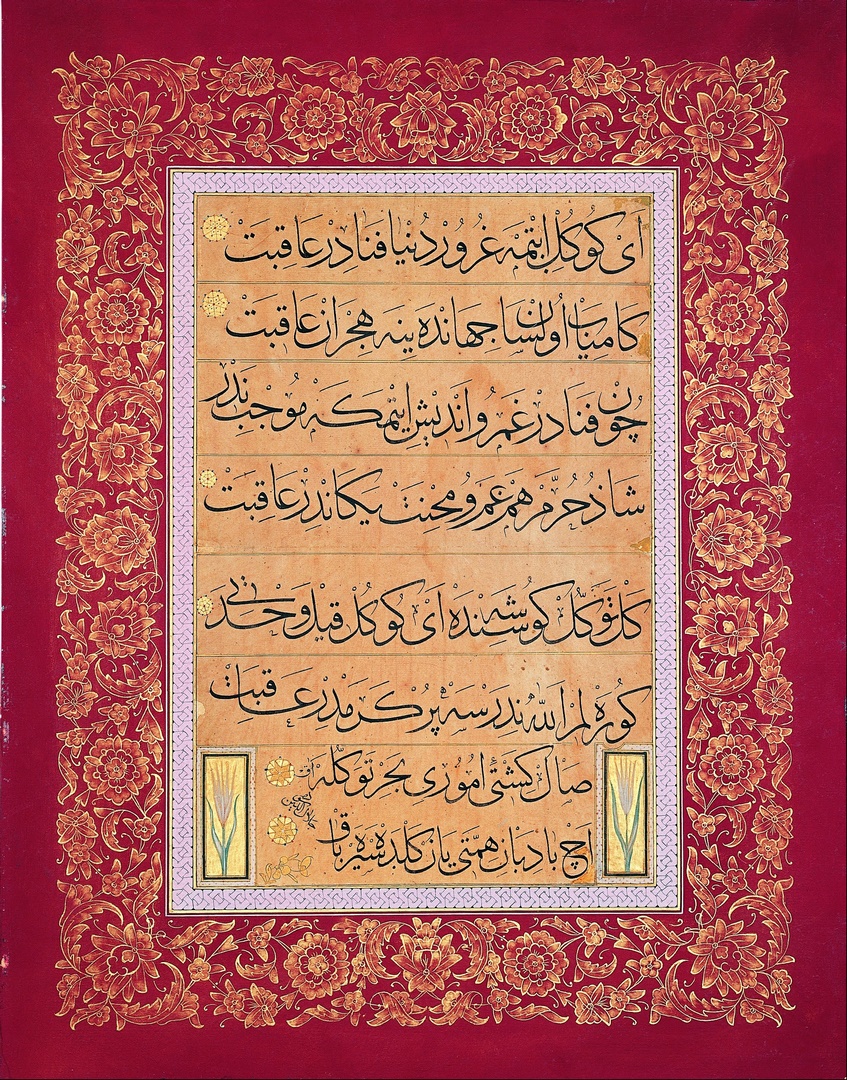 ای کوکل ایتمه غرور دنیا فنادر عاقبت
کامیاب اولسان جهانده ینه هجران عاقبت
چون فنادر غم و اندیش ایتمکه موجب ندر
شاذ خرم هم غم و محنت یکاندر عاقبت
کل توکل کوشه‌سنده ای کوکل قیل وحدتی
کوره‌لم الله ندر سه پر کرمدر عاقبت
صال کشتئ اموری بحر توکله
آچ بادبان همتی یان کلده سیره باق